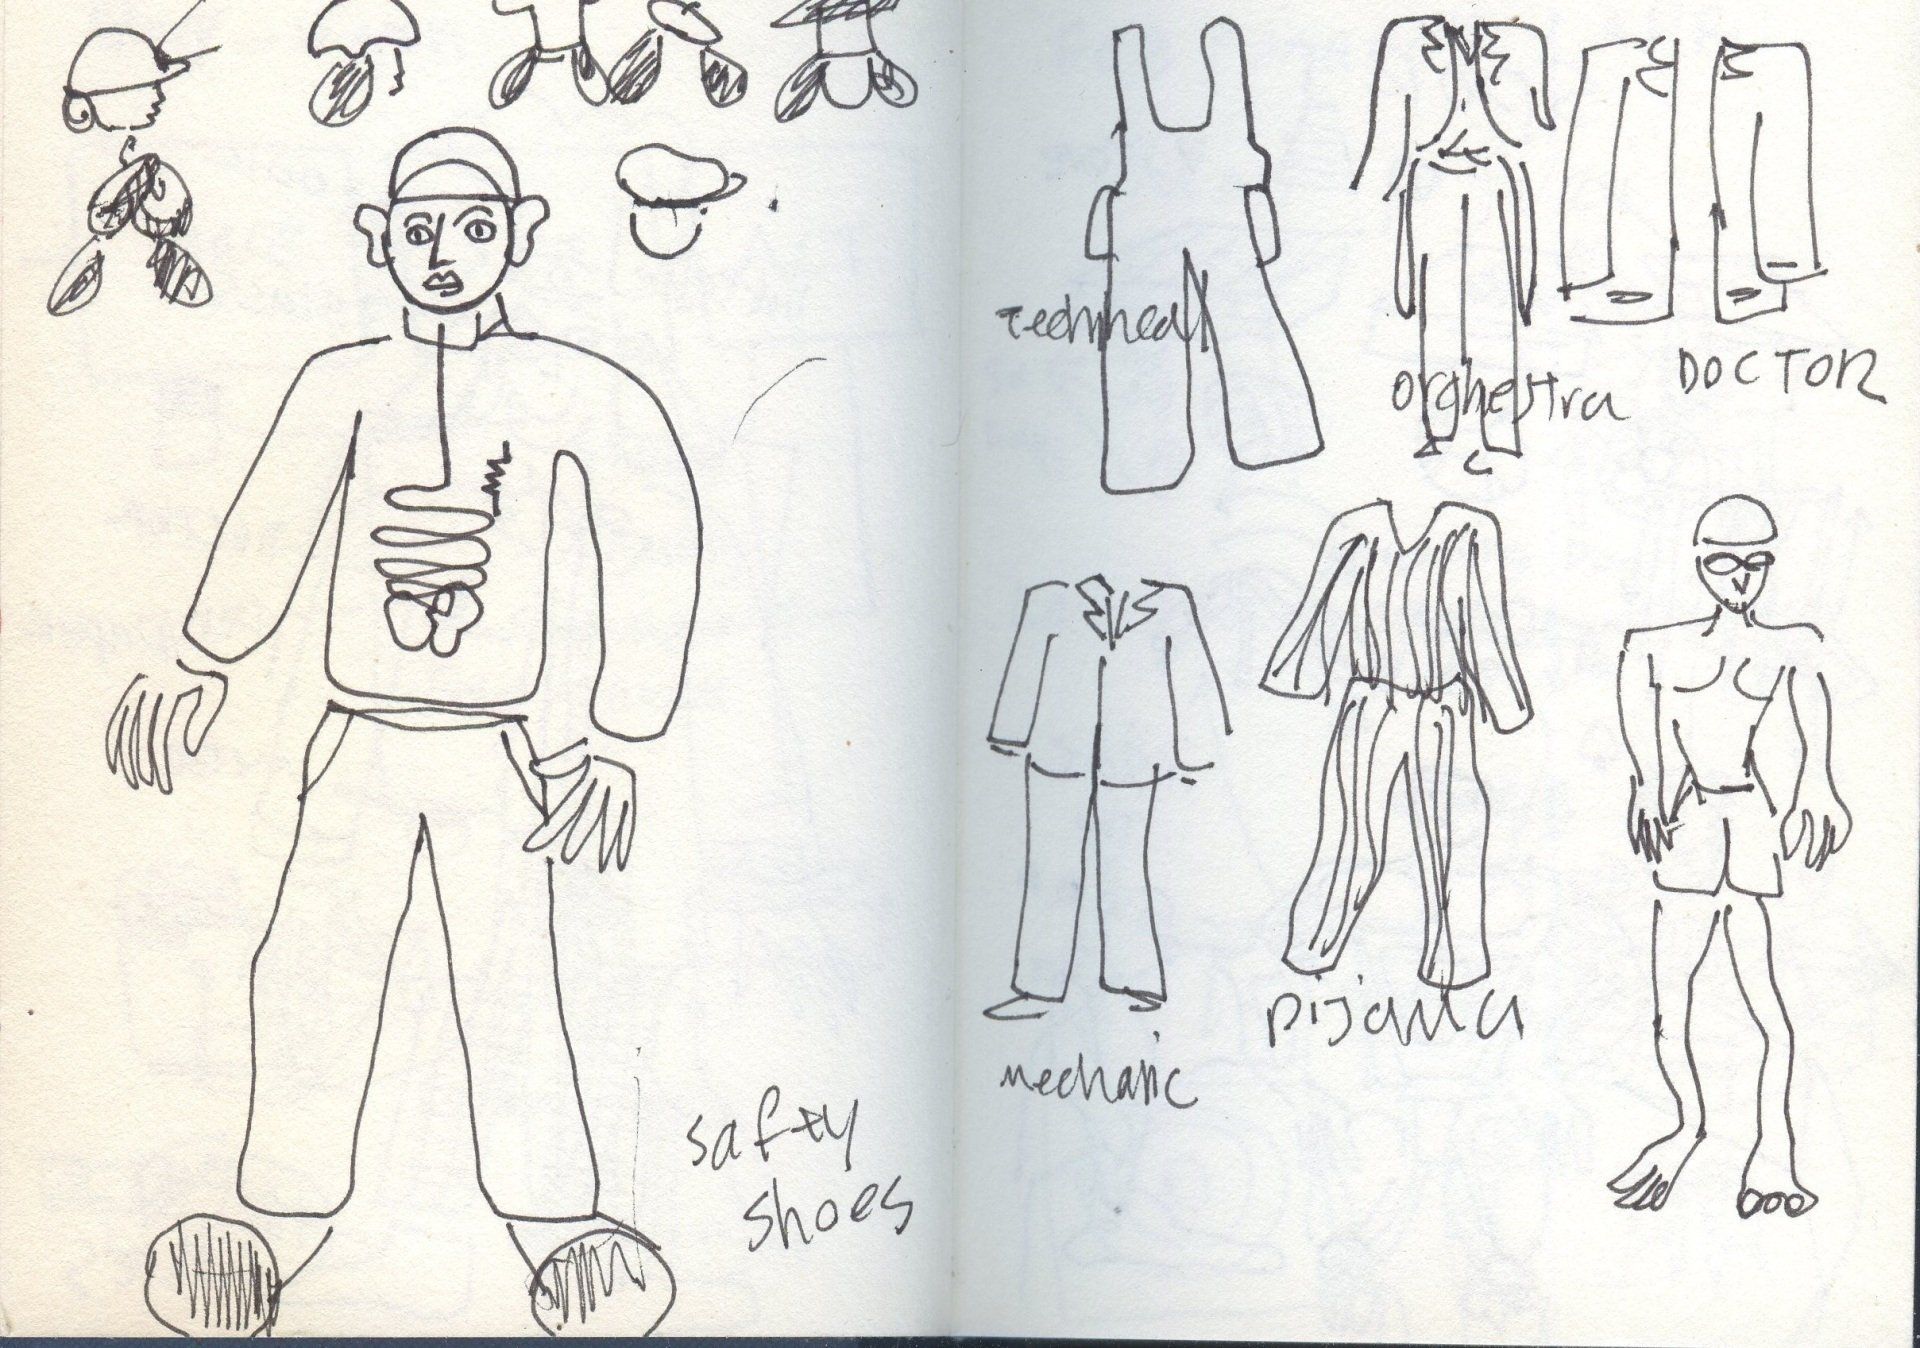 safty
shoes
technical
orghestra
DOCTOR
mechanic
pijama